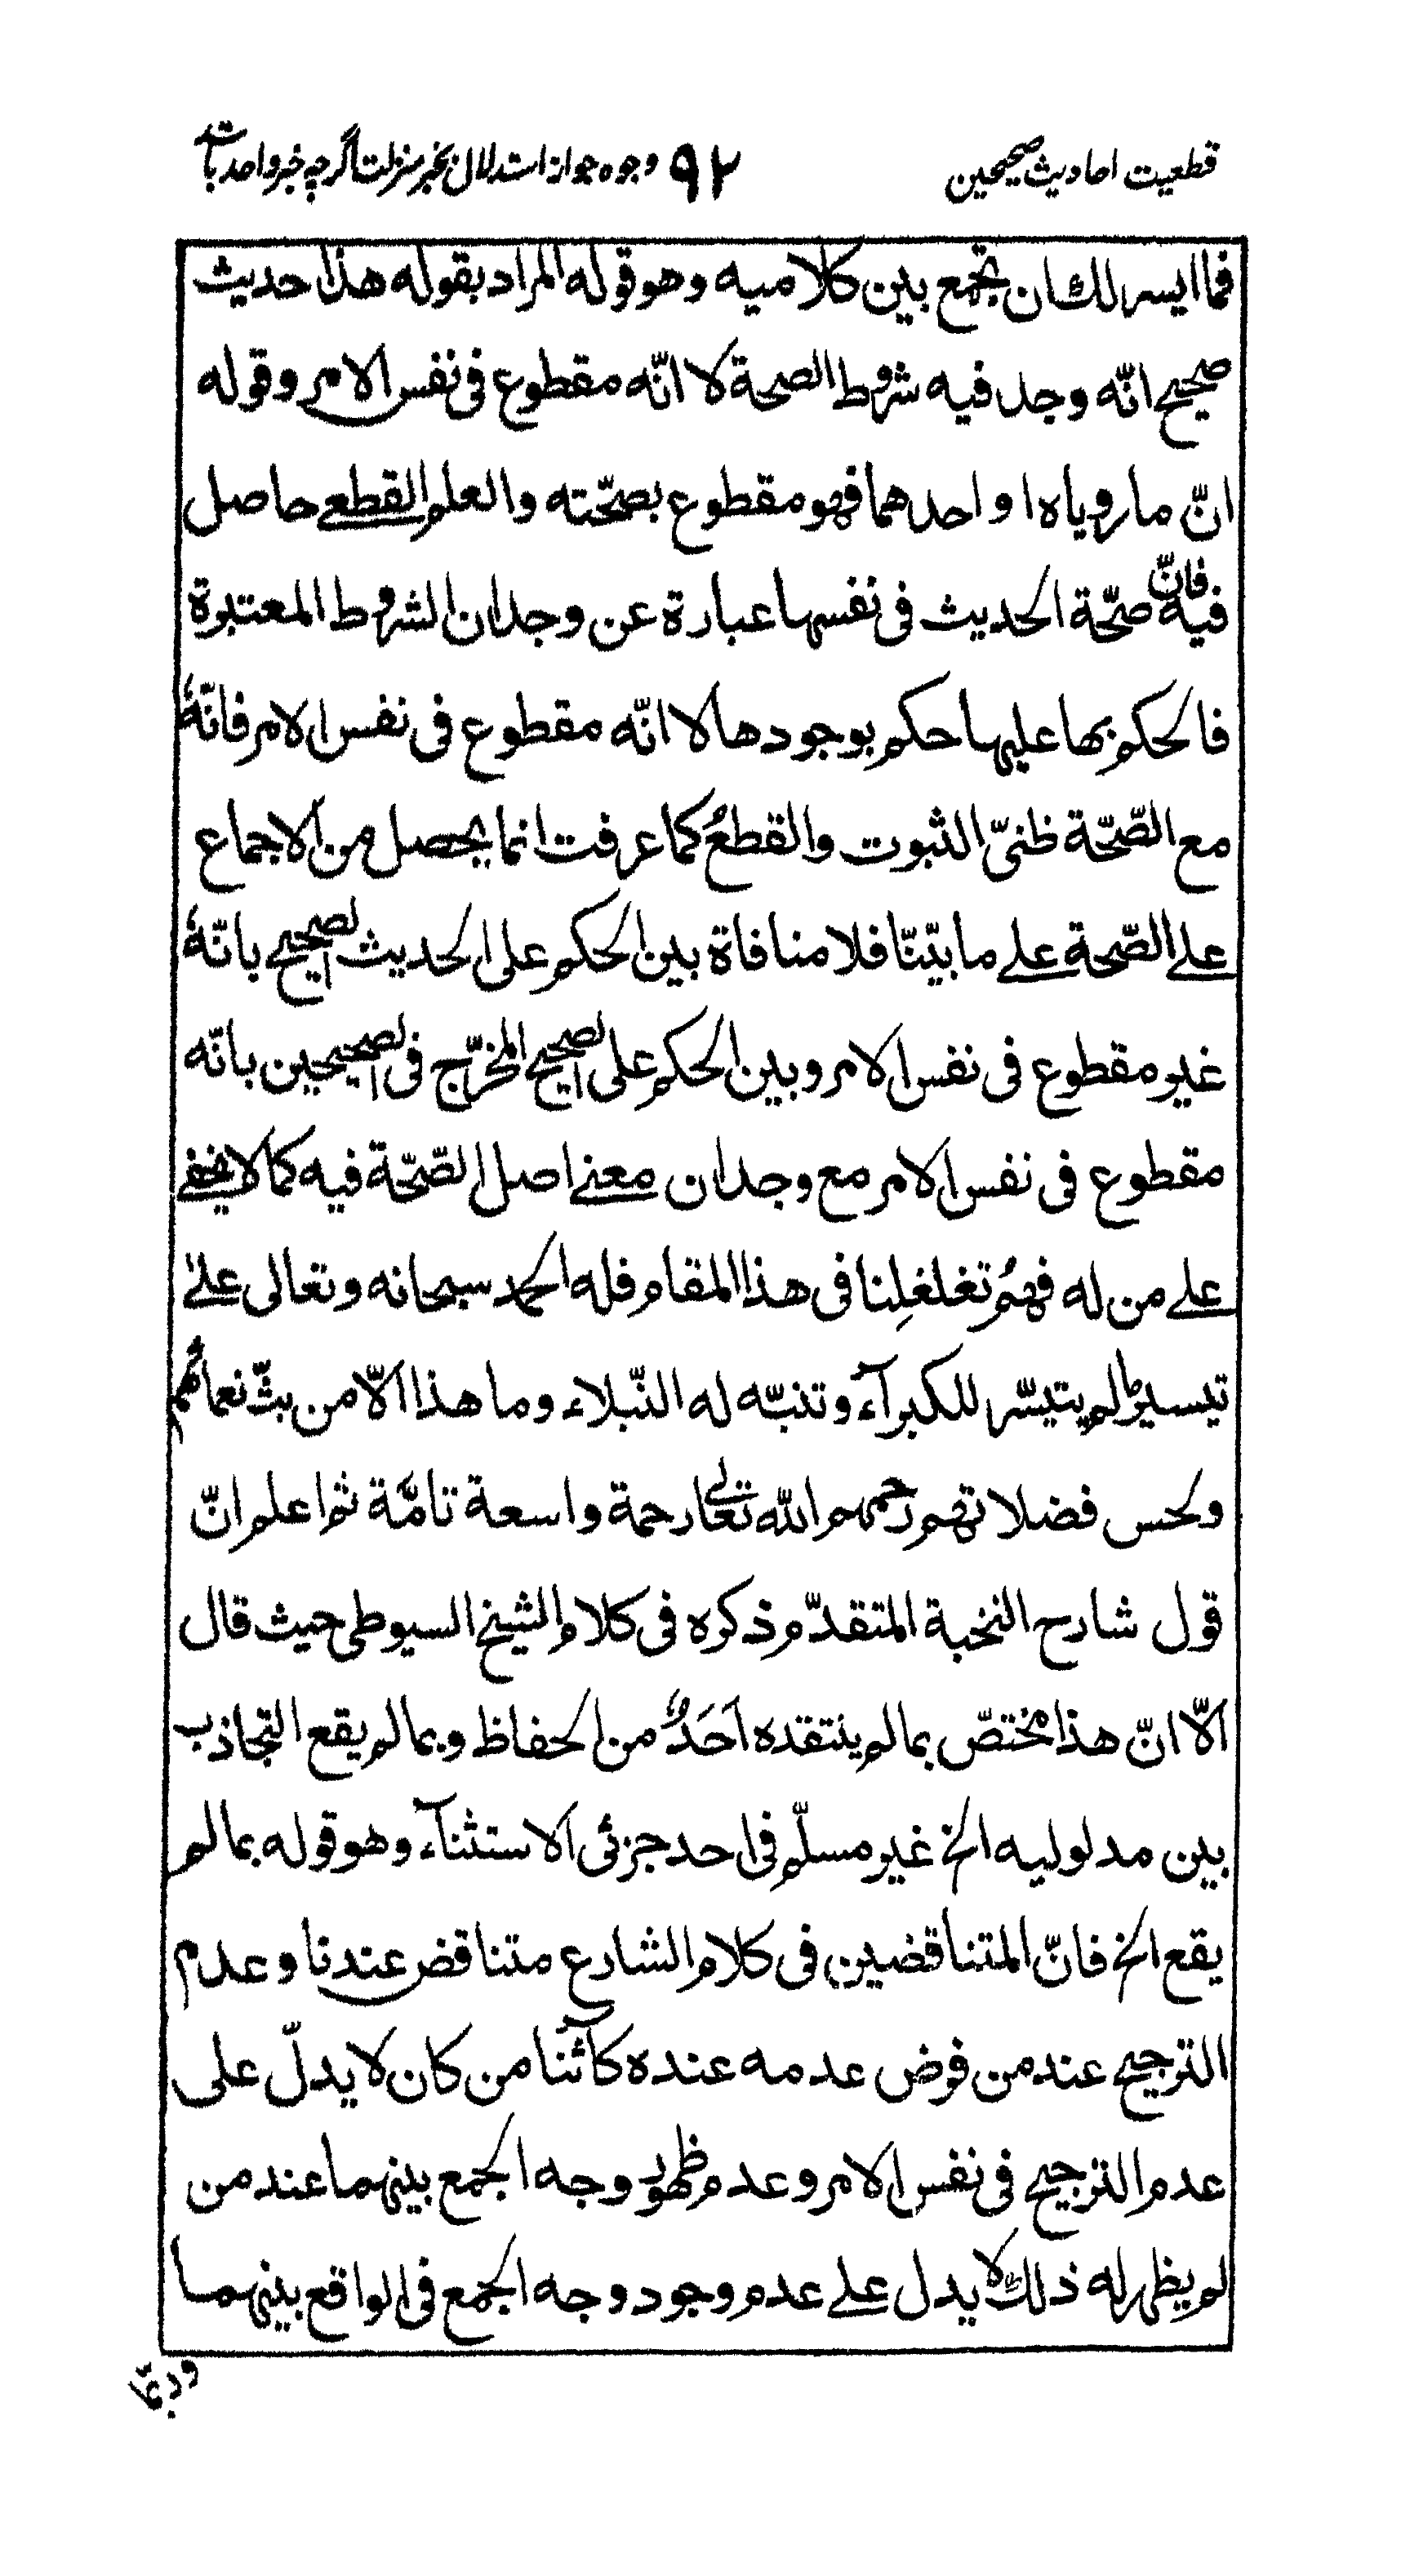 قطعیت احادیث صحیحین ۹۲ وجوه جواز استدلال بخبر منزلت اگرچه خبر واحد باشد
فما ايسر لك ان تجمع بين كلاميه وهو قوله المراد بقوله هذا حديث
صحيح انّه وجد فيه شروط الصحة لا انّه مقطوع فى نفس الامر وقوله
انّ ما روياه او احدهما فهو مقطوع بصحّته والعلم القطعے حاصل
فيه فانّ صحّة الحديث فى نفسها عبارة عن وجدان الشروط المعتبرة
فالحكم بها عليها حكم بوجودها لا انّه مقطوع فى نفس الامر فانّهٗ
مع الصّحّة ظنىّ الثبوت والقطعُ كما عرفت انما يحصل من الاجماع
علے الصّحة علے ما بيّنّا فلا منافاة بين الحكم على الحديث الصحيح بانّهٗ
غير مقطوع فى نفس الامر وبين الحكم على الصحيح المخرّج فى الصحيحين بانّه
مقطوع فى نفس الامر مع وجدان معنے اصل الصّحّة فيه كما لا يخفے
علے من له فهمُ تغلغلِنا فى هذا المقام فله الحمد سبحانه وتعالى علےٰ
تيسير ما لم يتيسّر للكبرآء وتنبّه له النّبلاء وما هذا الّا من بثّ نعمائهم
ولحس فضلاتهم رحمهم الله تعالى رحمة واسعة تامّة ثم اعلم انّ
قول شارح النخبة المتقدّم ذكره فى كلام الشيخ السيوطى حيث قال
الّا انّ هذا مختصّ بما لم ينتقده اَحَدٌ من الحفاظ وبما لم يقع التجاذب
بين مدلوليه الخ غير مسلّم فى احد جزئى الاستثنآء وهو قوله بما لم
يقع الخ فانّ المتناقضين فى كلام الشارع متناقض عندنا وعدم
الترجيح عند من فرض عدمه عنده كآئنا من كان لا يدلّ على
عدم الترجيح فى نفس الامر وعدم ظهور وجه الجمع بينهما عند من
لم يظهر له ذلك لا يدل علے عدم وجود وجه الجمع فى الواقع بينهما